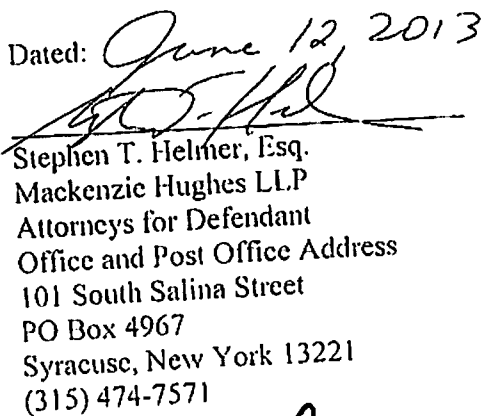 Dated: June 12, 2013
Stephen T. Helmer, Esq.
Mackenzie Hughes LLP
Attorneys for Defendant
Office and Post Office Address
101 South Salina Street
PO Box 4967
Syracuse, New York 13221
(315) 474-7571